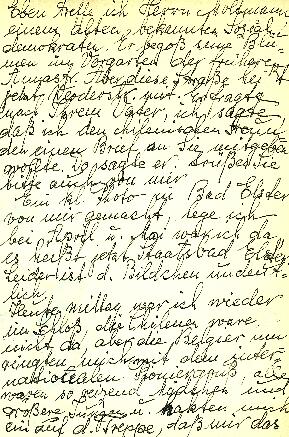 Eben treffe ich Herrn
einem alten, bekannten Sozial-
demokraten. Er begoß seine Blu-
men im Vorgarten der früheren
Aber diese Straße heißt
jetzt nur. Er fragte
nach Ihrem Vater, ich sagte,
daß ich dem chilenischen Freund,
den einen Brief an Sie mitgeben
möchte. So sagte er: Grüßen Sie
bitte auch von mir
Ein kl. Photo in Bad Elster
von mir gemacht, lege ich
bei April u. Mai war ich da
es heißt jetzt Staatsbad Elster
Leider ist d. Bildchen undeut-
lich.
Heute mittag war ich wieder
im Schloß, die Chilener waren
nicht da, aber die Belgier um-
ringten mich mit dem inter-
nationalen Pioniergruß, alle
waren so reizend Mädchen und
größere Jungen u. hakten mich
ein auf d. Treppe, daß mir das